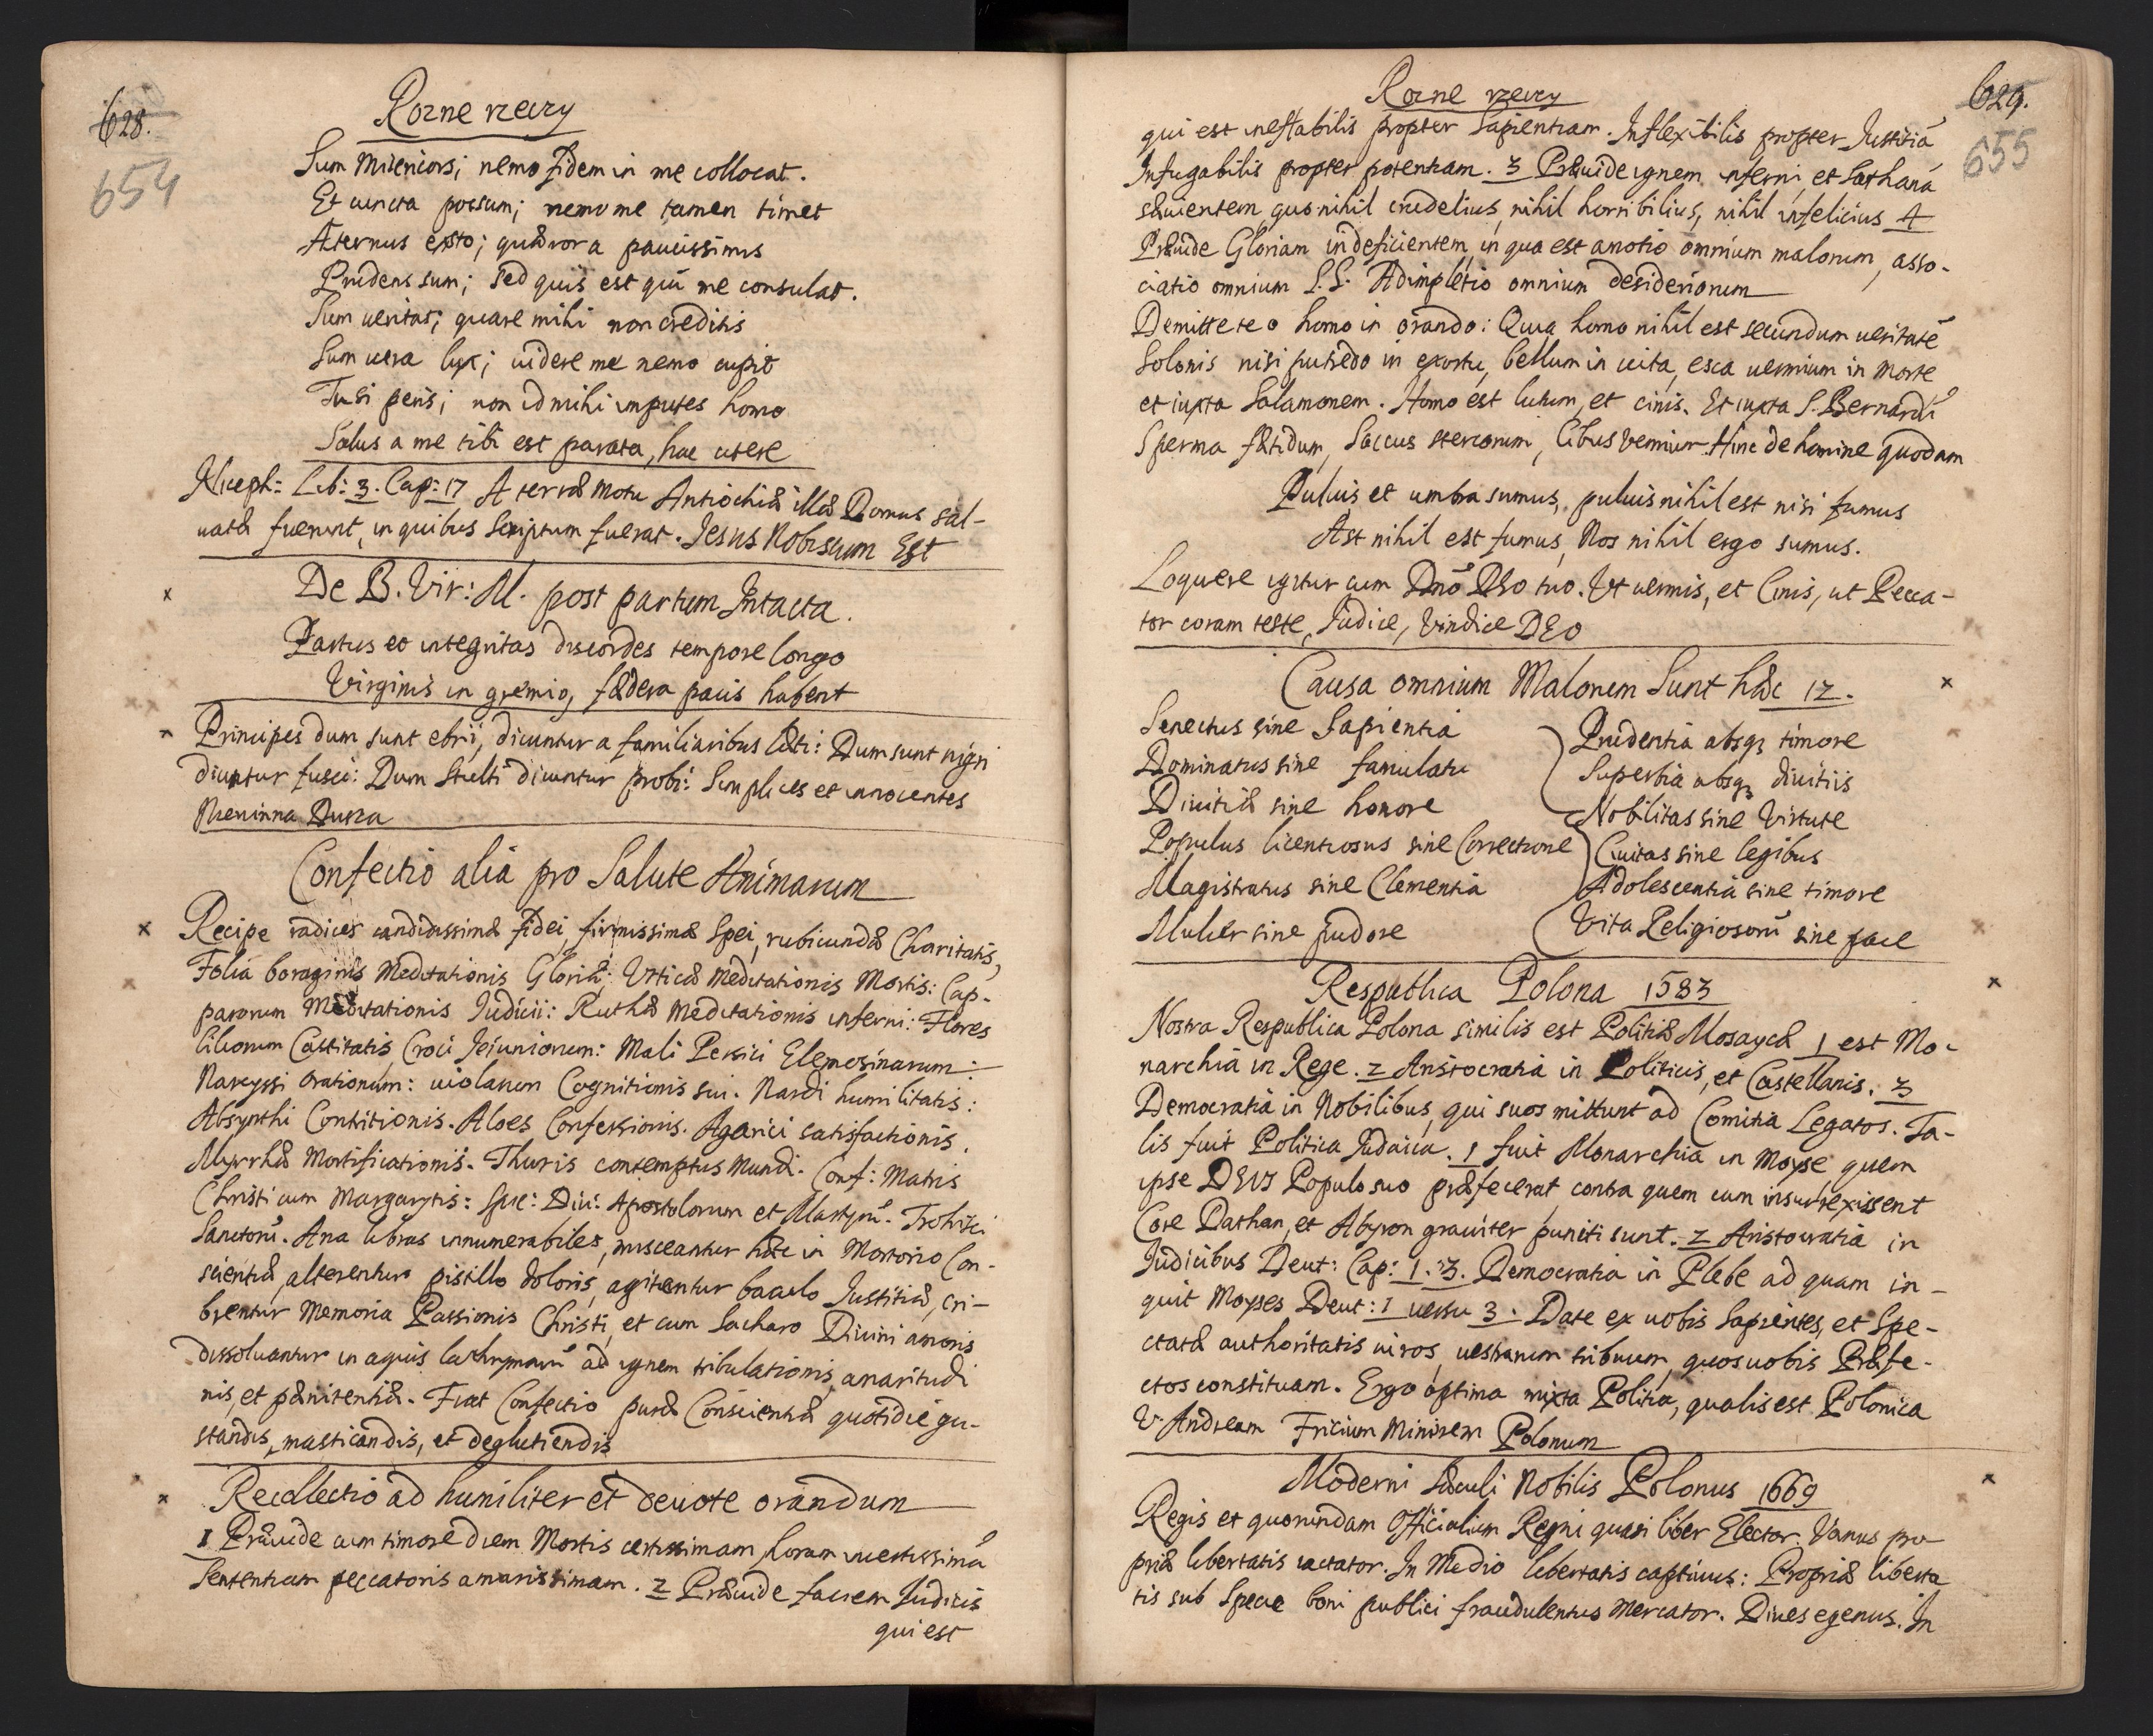 628.
654
Rozne rzeczy
Sum Misericors; nemo fidem in me collocat.
Et cuncta possum; nemo me tamen timet
Æternus exsto; quæror a paucissimis
Prudens sum; sed quis est qui me consulat.
Sum ueritas; quare mihi non creditis
Sum uera lux; uidere me nemo cupit
Tu si peris; non id mihi imputes homo
Salus a me tibi est parata, hac utere
Niceph: Lib: 3. Cap: 17 A terræ motu Antiochiæ illæ Domus sal-
uatæ fuerunt, in quibus scriptum fuerat. Jesus Nobiscum Est
De B. Vir: M. post partum Intacta.
Partus et integritas discordes tempore longo
Virginis in gremio, fædera pacis habent
Principes dum sunt ebrii, dicuntur a familiaribus læti: Dum sunt nigri
dicuntur fusci: Dum Stulti dicuntur probi: Simplices et innocentes
Niewinna Dusza
Confectio alia pro Salute Animarum
Recipe radices candidissimæ fidei, firmissimæ Spei, rubicundæ Charitatis,
Folia boraginis Meditationis Gloriæ; Vrticæ Meditationis Mortis: Cap-
parorum Meditationis Iudicii: Ruthæ Meditationis inferni: Flores
liliorum Castitatis, Croci Jeiuniorum: Mali Persici Elemosinarum:
Narcyssi orationum: uiolarum Cognitionis sui. Nardi humilitatis:
Absynthi Contritionis. Aloes Confessionis. Agarici satisfactionis.
Myrrhæ Mortificationis. Thuris contemptus Mundi. Conf: Matris
Christi cum Margarytis: Spe: Diui: Apostolorum et Martyrũ. Trohisci
Sanctorũ. Ana libras innumerabiles, misceantur hæc in Mortorio Con-
scientiæ, alterentur pistillo doloris, agitentur baculo Iustitiæ, cri-
brentur Memoria Passionis Christi, et cum Sacharo Diuini amoris
dissoluantur in aquis lachrymarũ ad ignem tribulationis, amaritudi
nis, et pænitentiæ. Fiat Confectio puræ Conscientiæ quotidie gu-
standis, masticandis, et deglutiendis
Recollectio ad humiliter et deuote orandum
1 Præuide cum timore diem Mortis certissimam, horam incertissimã
Sententiam peccatoris amarissimam. 2 Præuide faciem Iudicis
qui est
629.
655
Rozne rzeczy
qui est ineffabilis propter Sapientiam. Inflexibilis propter Iustitiã
Infugabilis propter potentiam. 3 Præuide ignem inferni, et Sathanã
sæuientem, quo nihil crudelius, nihil horribilius, nihil infelicius 4
Præuide Gloriam indeficientem, in qua est amotio omnium malorum, asso-
ciatio omnium S.S. Adimpletio omnium desideriorum
Demitte te o homo in orando: Quia homo nihil est secundum ueritatẽ
Solonis nisi putredo in exortu, bellum in uita, esca uermium in Morte
et iuxta Salamonem. Homo est lutum, et cinis. Et iuxta S. Bernardũ
Sperma fætidum, Saccus stercorum, Cibus Vermium. Hinc de homine quodam
Puluis et umbra sumus, puluis nihil est nisi fumus
Ast nihil est fumus, Nos nihil ergo sumus.
Loquere igitur cum Dnõ DEO tuo. Vt uermis, et Cinis, ut Pecca-
tor coram teste, Iudice, Vindice DEO
Causa omnium Malorum Sunt hæc 12.
Senectus sine Sapientia
Dominatus sine famulatu
Diuitiæ sine honore
Populus licentiosus sine Correctione
Magistratus sine Clementia
Mulier sine pudore
Prudentia absq3 timore
Superbia absq3 diuitiis
Nobilitas sine Virtute
Ciuitas sine legibus
Adolescentia sine timore
Vita Religiosorũ sine pace
Respublica Polona 1583
Nostra Respublica Polona similis est Politiæ Mosaycæ 1 est Mo-
narchia in Rege. 2 Aristocratia in Politicis, et Castellanis. 3
Democratia in Nobilibus, qui suos mittunt ad Comitia Legatos. Ta-
lis fuit Politica Iudaica. 1 fuit Monarchia in Moyse, quem
ipse DEUS Populo suo præfecerat, contra quem cum insurrexissent
Core Dathan, et Abyron grauiter puniti sunt. 2 Aristocratia in
Iudicibus Deut: Cap: 1. 3. Democratia in Plebe ad quam in-
quit Moyses Deut: 1 uersu 3. Date ex uobis Sapientes, et Spe-
ctatæ authoritatis uiros, uestrarum tribuum, quos uobis Præfe-
ctos constituam. Ergo optima mixta Politia, qualis est Polonica
V. Andream Fricium Minorem Polonum
Moderni Sæculi Nobilis Polonus 1669
Regis et quorundam Officialium Regni quasi liber Elector. Vanus pro
priæ libertatis iactator. In Medio libertatis captiuus: Propriæ liberta
tis sub Specie boni publici fraudulentus Mercator. Diues egenus. In